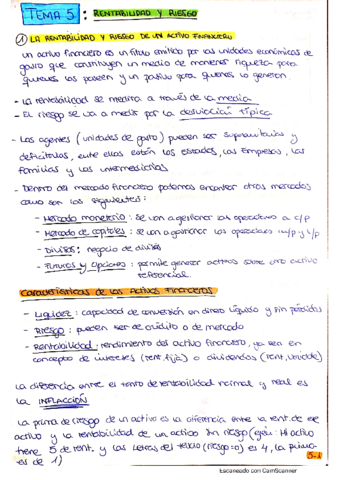 TEMA 5 : RENTABILIDAD Y RIESGO
① LA RENTABILIDAD Y RIESGO DE UN ACTIVO FINANCIERO
un activo financiero es un título emitido por las unidades económicas de
gasto que constituyen un medio de mantener riqueza para
quienes los poseen y un pasivo para quienes lo generan.
- La rentabilidad se medirá a través de la media
- El riesgo se va a medir por la desviación típica
- Los agentes (unidades de gasto) pueden ser superavitarias y
deficitarias, entre ellas están los estados, las Empresas, las
familias y los intermediarios
- Dentro del mercado financiero podemos encontrar otros mercados
como son los siguientes:
- Mercado monetario : se van a gestionar las operaciones a c/p
- Mercado de capitales : se van a gestionar las operaciones m/p y l/p
- Divisas : negocio de divisas
- Futuros y Opciones : permite generar activos sobre otro activo
referencial.
Características de los Activos Financieros
- Liquidez : capacidad de conversión en dinero líquido y sin pérdidas
- Riesgo : pueden ser de crédito o de mercado
- Rentabilidad : rendimiento del activo financiero, ya sea en
concepto de intereses (rent. fija) o dividendos (rent. variable)
La diferencia entre el tanto de rentabilidad normal y real es
la INFLACCIÓN
La prima de riesgo de un activo es la diferencia entre la rent. de ese
activo y la rentabilidad de un activo sin riesgo (ejm: Mi activo
tiene 5 de rent. y las letras del tesoro (riesgo=0) es 4, la prima
es de 1)
5-1
Escaneado con CamScanner